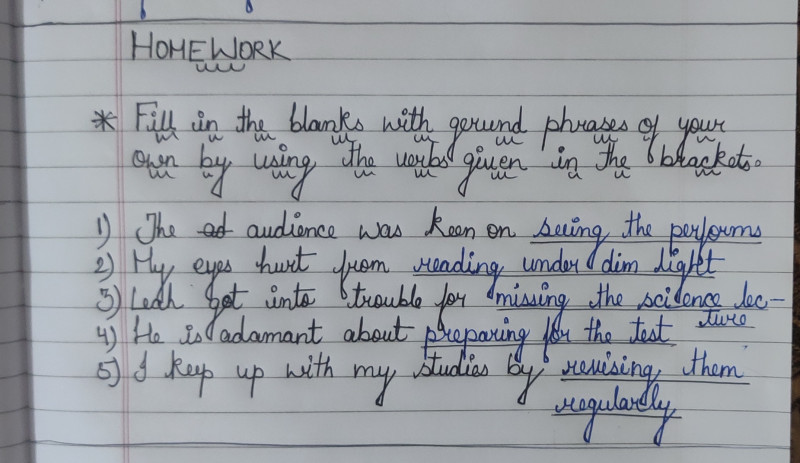 HOMEWORK
* Fill in the blanks with gerund phrases of your
own by using the verbs given in the brackets.
1) The ad audience was keen on seeing the performs
2) My eyes hurt from reading under dim light
3) Leah got into trouble for missing the science lec-
ture
4) He is adamant about preparing for the test
5) I keep up with my studies by revising them
regularly